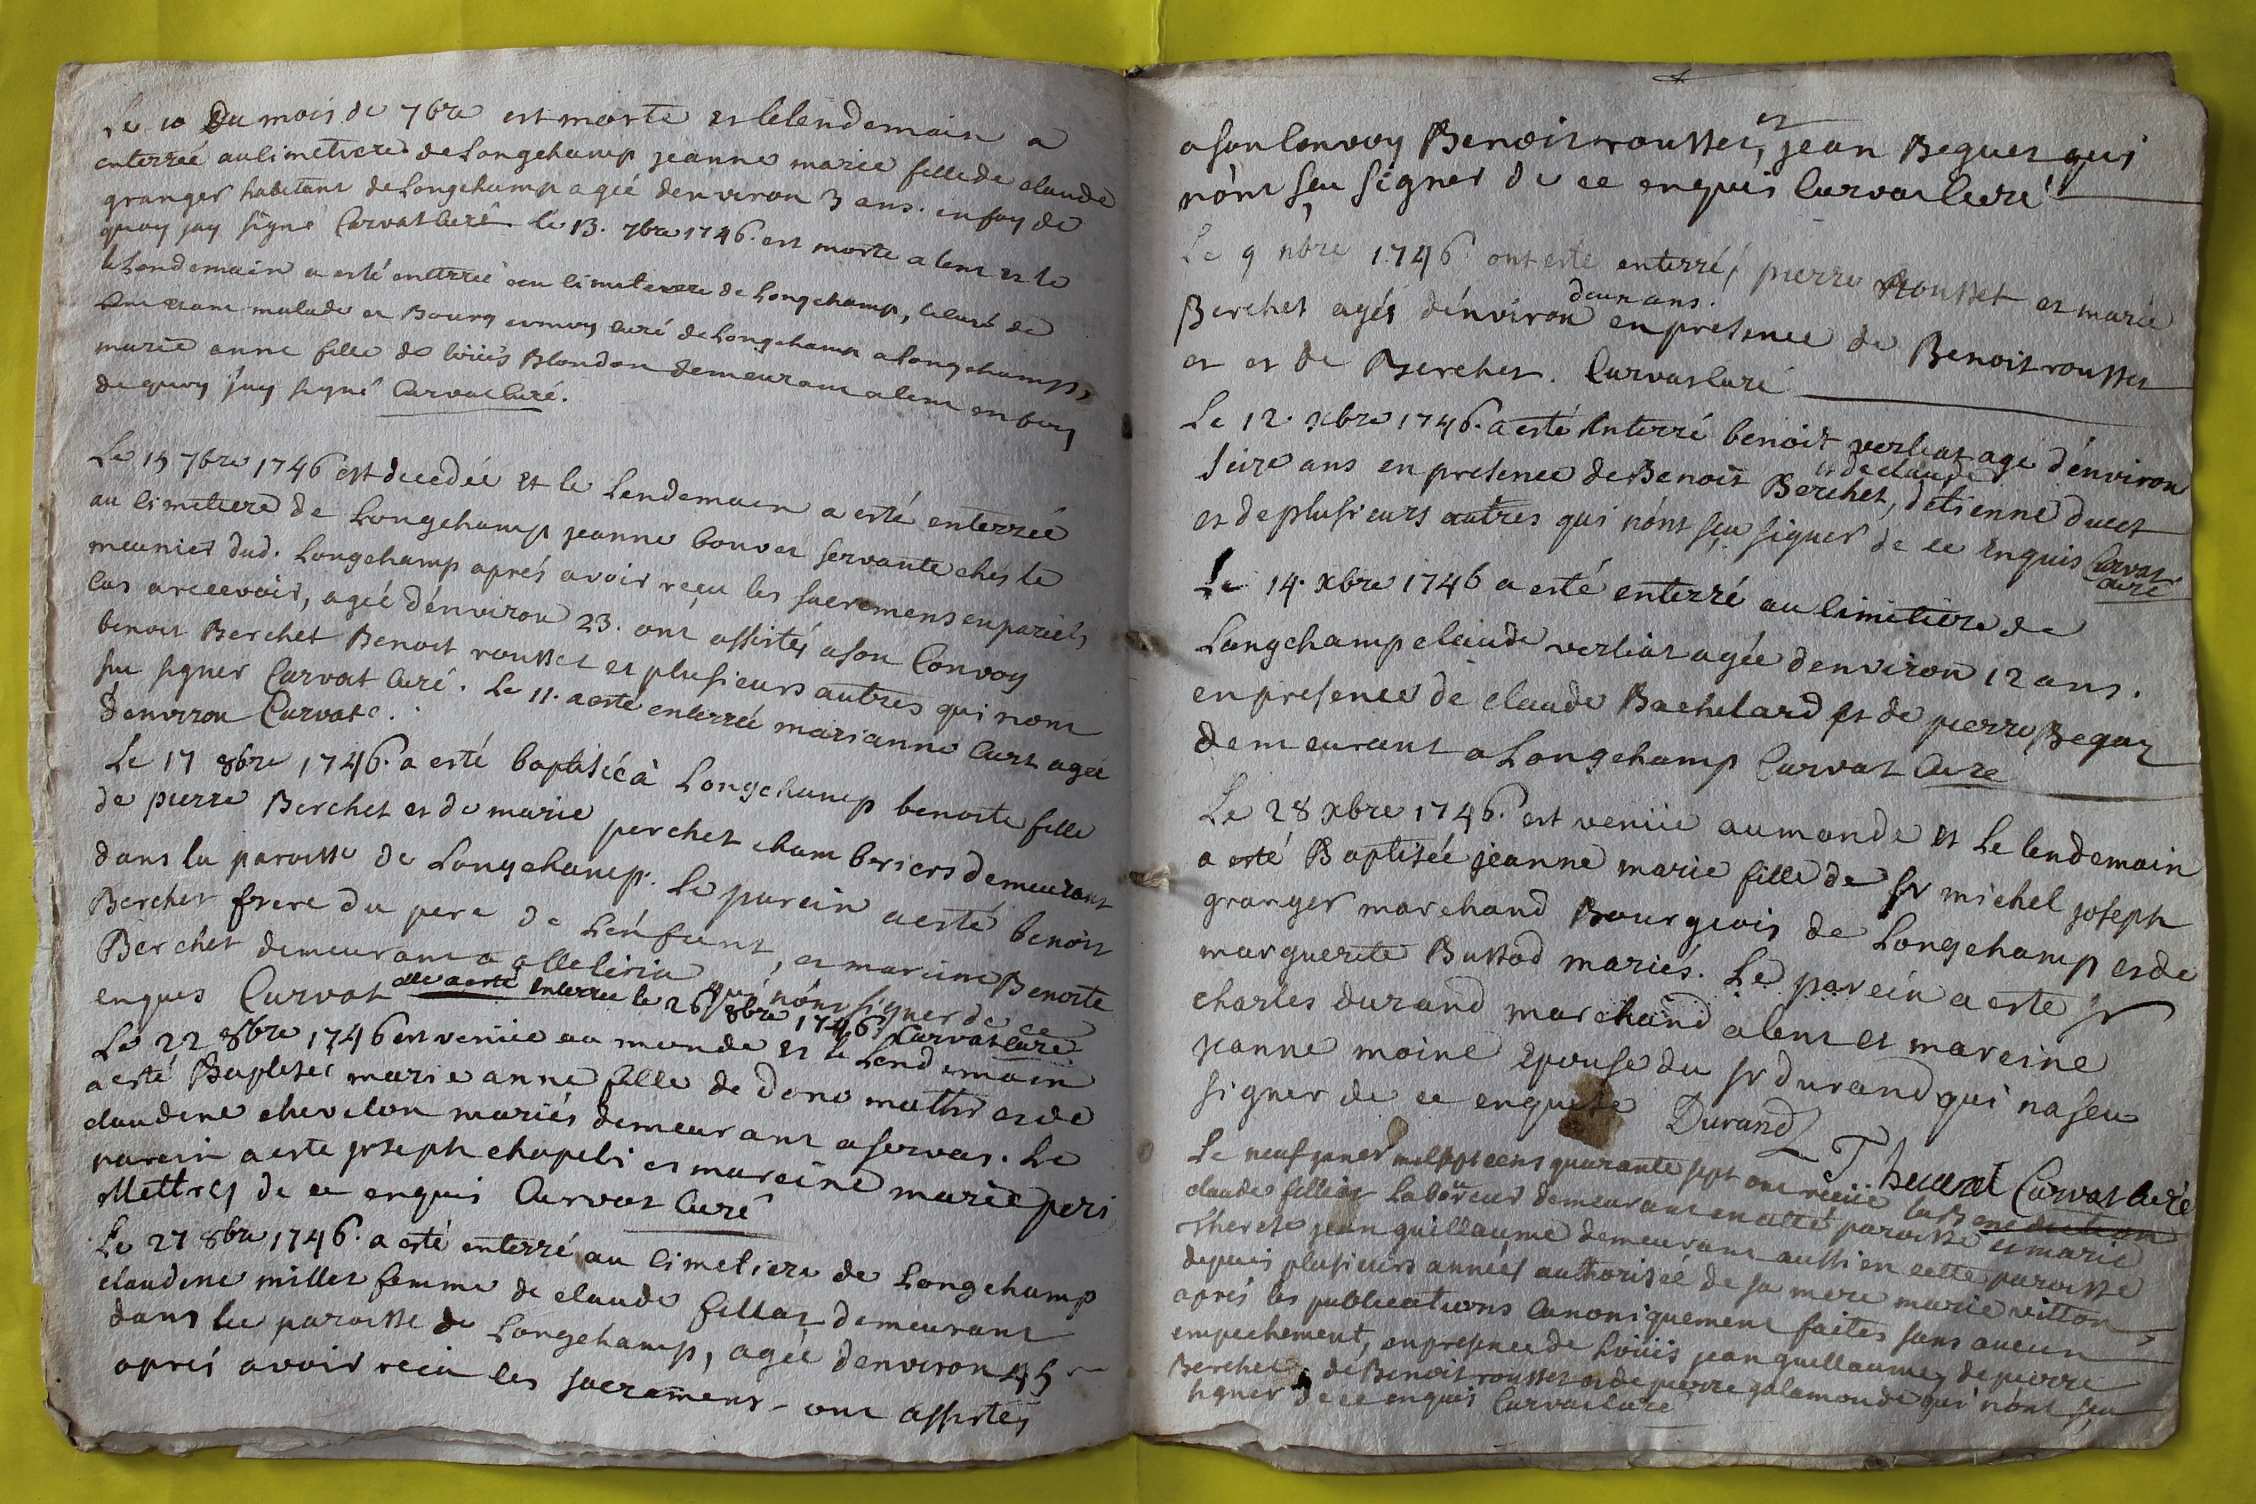 Le 10 Du mois de 7bre est morte et lelendemain a
enterrée aulimetiere de Longchamp jeanne marie fille de claude
granger habitant de Longchamp agée denviron 3 ans. enfoy de
quoy jay signé Curvat Curé. le 13. 7bre 1746. est morte a lent et le
lelendemain a esté enterrée au limetiere de Longchamp, le curé de
lent etant malade et Bourg curé de Longchamp a longchamp,
marie anne fille de loüis Blondon demeurant a lent en foy
de quoy j'ay signé Curvat Curé.
Le 15 7bre 1746 est decedée et le Lendemain a esté enterrée
au limetiere de Longchamp jeanne bouvet servante chés le
meunier dud. Longchamp aprés avoir reçu les sacremens en pareils
cas arecevoir, agée d'énviron 23. ont assistés ason Convoy
benoit Berchet Benoit rousset et plusieurs autres qui nont
sçu signer Curvat Curé. Le 11. aesté enterrée marianne Curt agée
d'environ Curvat c.
Le 17 8bre 1746. a esté baptisée à Longchamp benoite fille
de pierre Berchet et de marie perchet chambriers demeurant
dans la paroisse de Longchamp. Le parein a esté benoit
Berchet frere du pere de L'énfant, et mareine Benoite
Berchet demeurant a qui nónt signer de ce
enques Curvat elle a esté Interrée le 26 8bre 1746. Curvat curé
Le 22 8bre 1746 est venüe au monde et le Lendemain
a esté Baptisée marie anne fille de dono et de
claudine chevelon mariés demeurant a servas. Le
parein a esté joseph chapeli et mareine marie peri
illettrés de ce enquis Curvat Curé
Le 27 8bre 1746. a esté enterré au limetiere de Longchamp
claudine millet femme de claude fillat demeurant
dans la paroisse de Longchamp, agée denviron 45
aprés avoir recu les sacremens - ont assistés
a son Convoy Benoit rousset, et jean Beguet qui
nónt sçu signer de ce enquis Curvat Curé
Le 9 nbre 1746. ont esté enterrés pierre Rousset et marie
Berchet agés d'énviron deux ans. en presence de Benoit rousset
et et de Berchet. Curvat Curé
Le 12. xbre 1746. a esté Interré benoit verliat agé d'énviron
seize ans en presence de Benoit Berchet, et de claude d'etienne ducet
et de plusieurs autres qui nónt sçu signer de ce Enquis Curvat
curé
Le 14. xbre 1746 a esté enterré au limetiere de
Longchamp claude verliat agée denviron 12 ans.
en presence de claude Bachelard et de pierre Begaz
demeurant a Longchamp Curvat Curé
Le 28 xbre 1746. est venüe au monde et Le lendemain
a esté Baptisée jeanne marie fille de sr michel joseph
granger marchand Bourgeois de Longchamp et de
marguerite Bussod mariés. Le parein a esté sr
charles durand marchand a lent et mareine
jeanne moine Epouse du sr durand qui na sçu
signer de ce enquise Durand
Curvat Curé
Le neuf janer mil sept cens quarante sept ont reçüe la Benediction
claude filliat Laboureur demeurant en cette paroisse et marie
therese jean guillaume demeurant aussi en cette paroisse
depuis plusieurs années authorisée de sa mere marie vitton,
aprés les publications Canoniquement faites sans aucun
empechement, en presence de Loüis jean guillaume, de pierre
Berchet, de Benoit rousset et de pierre galamonde qui nónt sçu
signer de ce enquis Curvat Curé